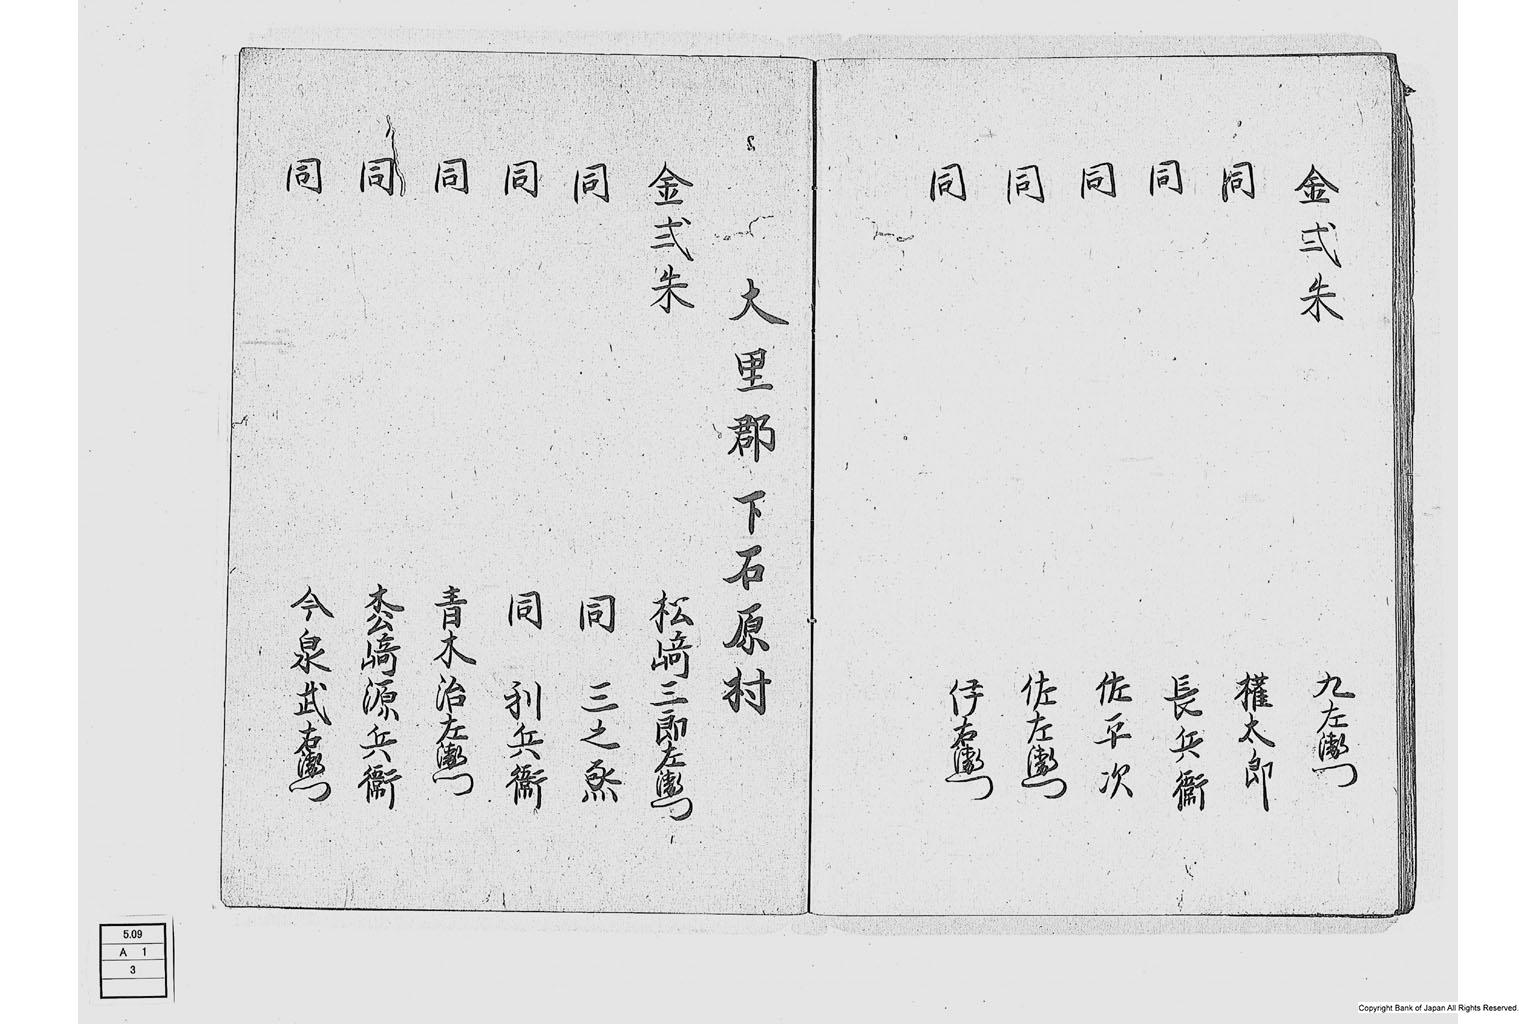 金弐朱 九左衛門
同 權太郎
同 長兵衞
同 佐平次
同 佐左衛門
同 伊右衛門
大里郡下石原村
金弐朱 松﨑三郎左衛門
同 同 三之烝
同 同 利兵衞
同 青木治左衛門
同 枩﨑源兵衞
同 今泉武右衛門
5.09
A 1
3
Copyright Bank of Japan All Rights Reserved.